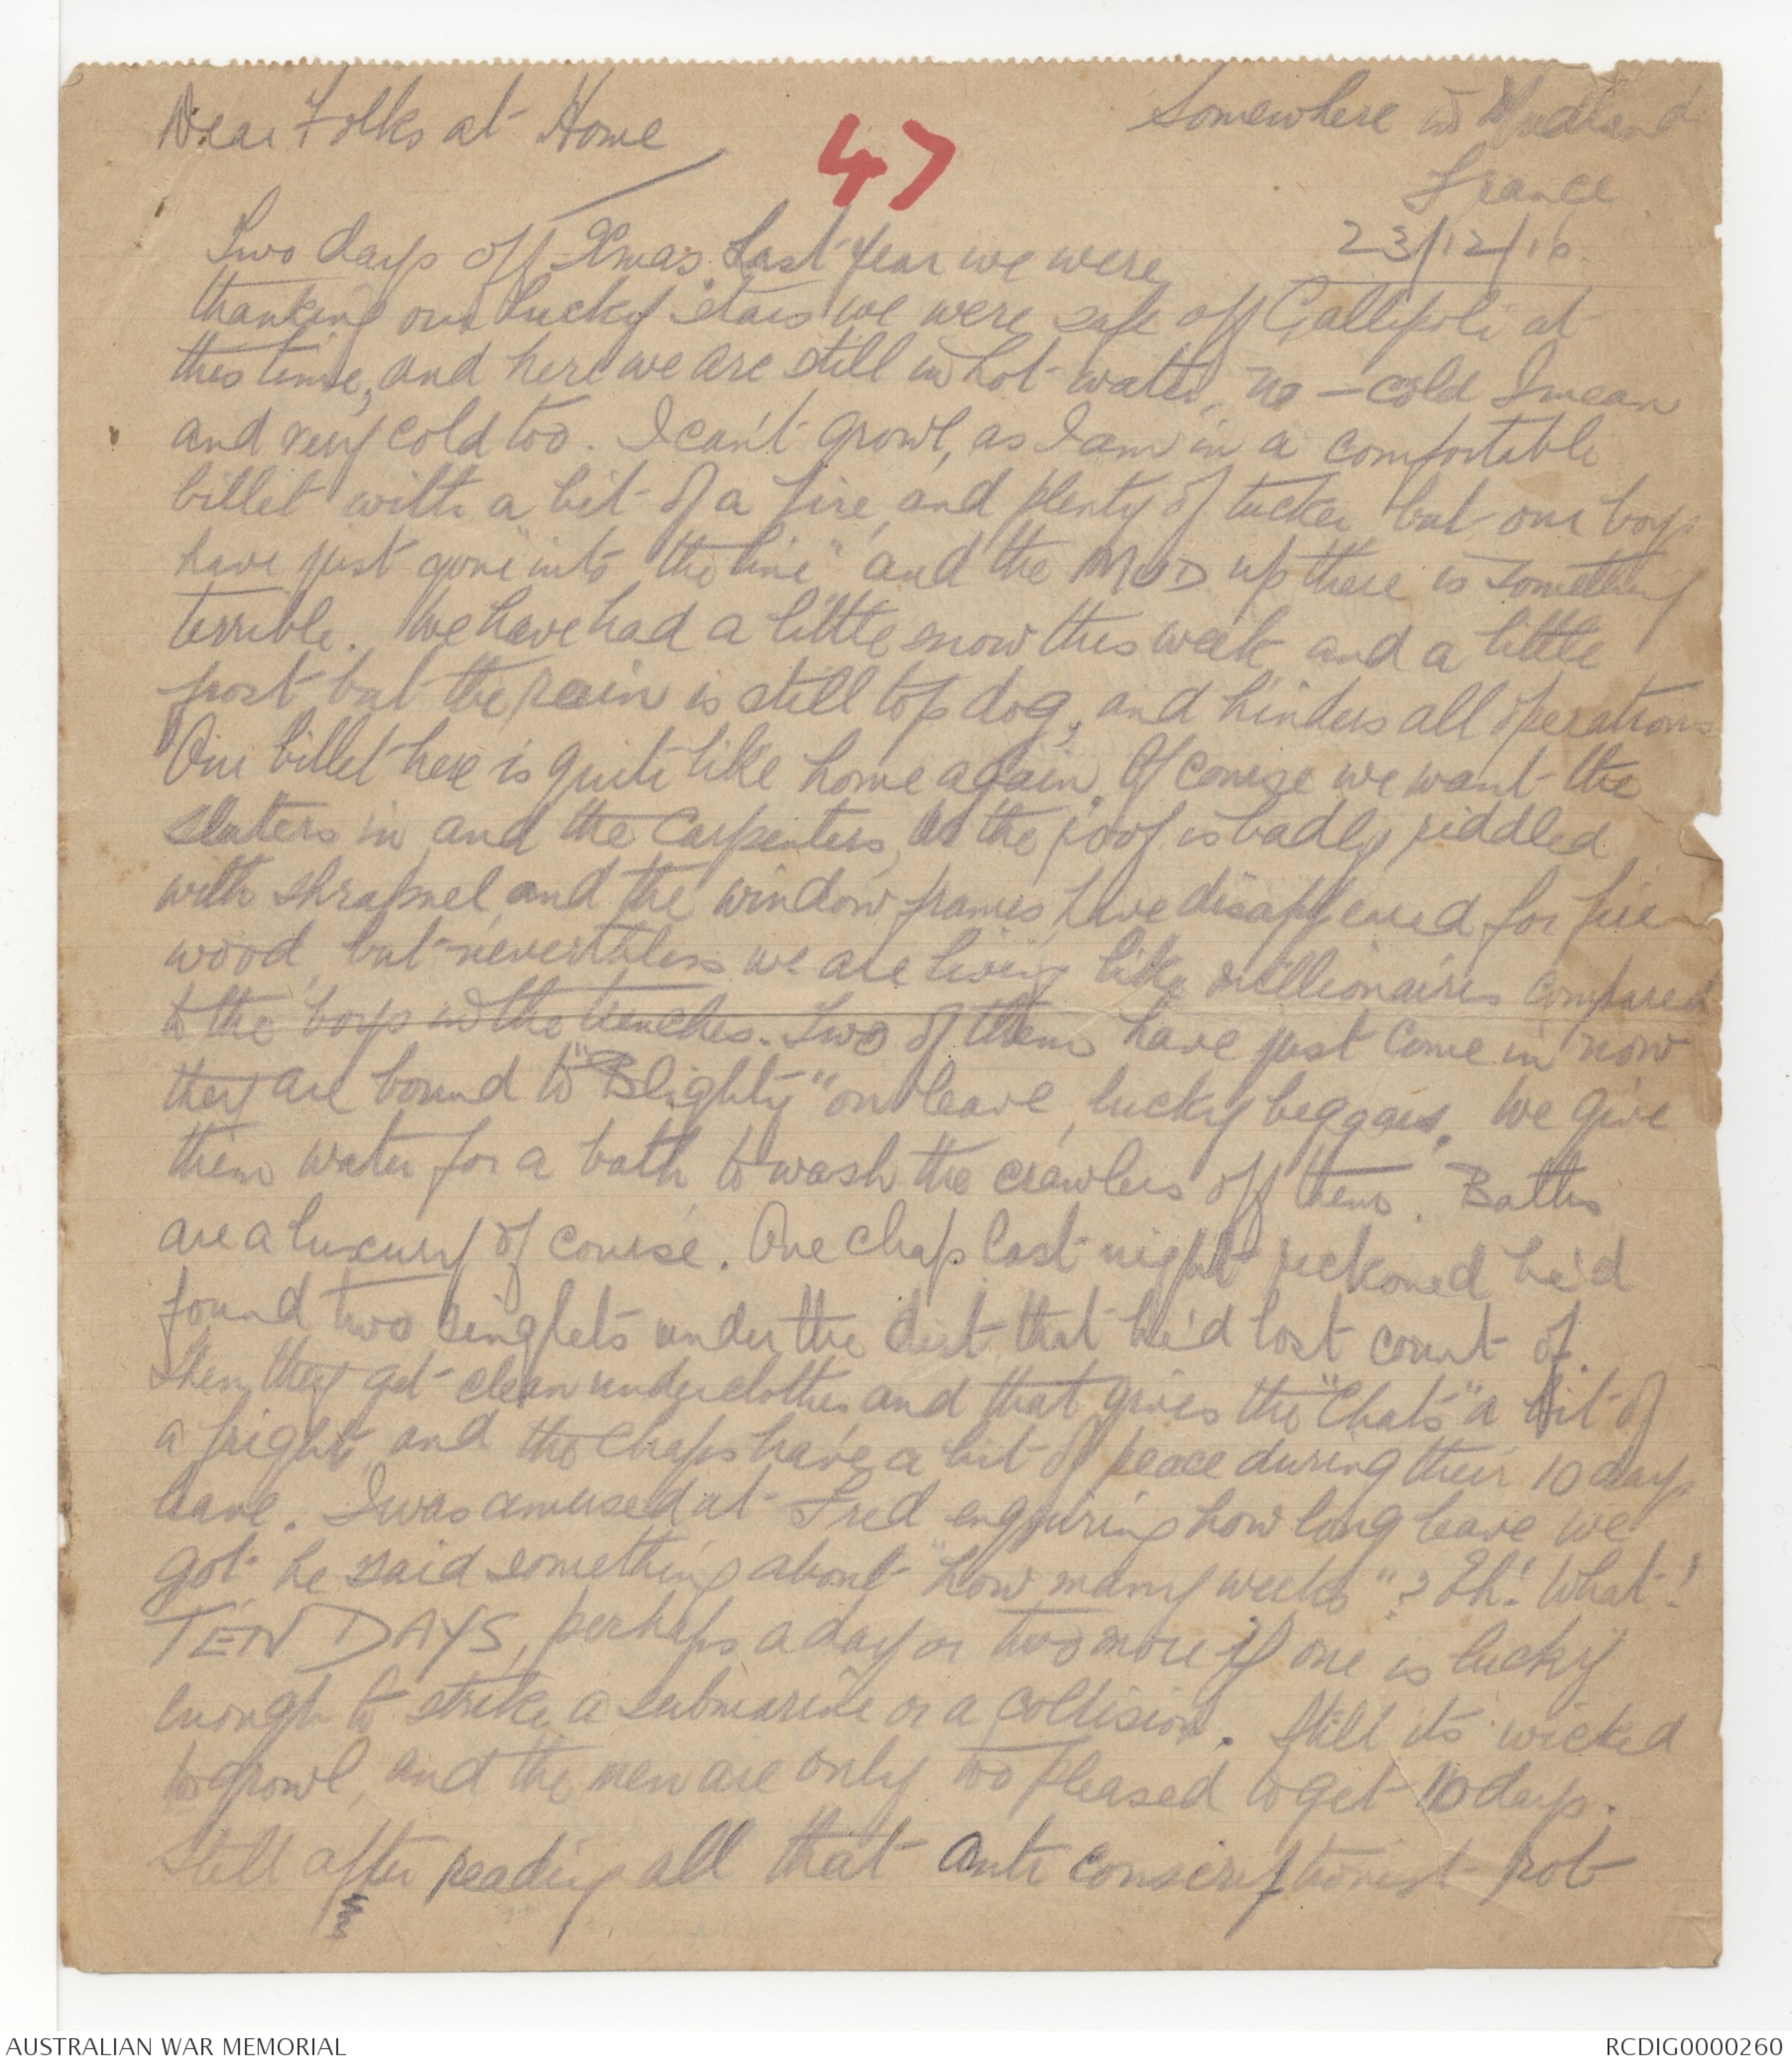 Dear Folks at Home
47
Somewhere in Mudland
France
23/12/16.
Two days off Xmas. Last year we were
thanking our lucky stars we were safe off Gallipoli at
this time, and here we are still in hot water, no – cold I mean
and very cold too. I can't growl, as I am in a comfortable
billet with a bit of a fire, and plenty of tucker, but our boys
have just gone into "the line" and the MUD up there is something
terrible. We have had a little snow this week and a little
frost but the rain is still top dog, and hinders all operations
Our billet here is quite like home again. Of course we want the
slaters in, and the Carpenters, as the roof is badly riddled
with shrapnel, and the window frames have disappeared for fire
wood, but nevertheless we are living like millionaires compared
to the boys in the trenches. Two of them have just come in now
they are bound to "Blighty" on leave, lucky beggars. We give
them water for a bath to wash the crawlers off them. Baths
are a luxury of course. One chap last night reckoned he'd
found two singlets under the dirt that he'd lost count of.
Then they get clean underclothes and that gives the "Chats" a bit of
a fright, and the chaps have a bit of peace during their 10 days
leave. I was amused at Fred enquiring how long leave we
got he said something about "how many weeks"? Eh! What!
TEN DAYS, perhaps a day or two more if one is lucky
enough to strike a submarine or a collision. Still its wicked
to growl, and the men are only too pleased to get 10 days.
Still after reading all that anti conscriptionist rot
AUSTRALIAN WAR MEMORIAL
RCDIG0000260